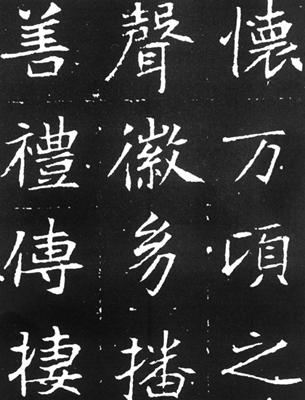 懷万頃之
聲徽幼播
善禮傳捿